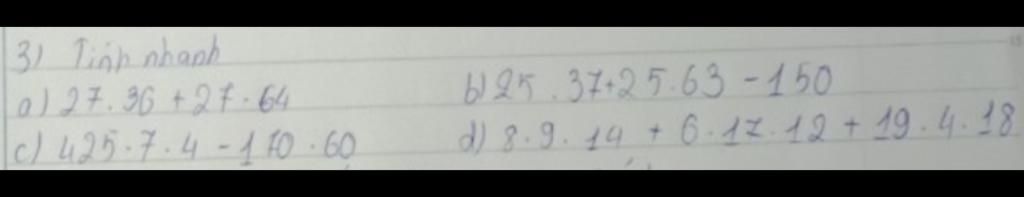 3) Tính nhanh
a) 27.36 + 27.64 b) 25.37+25.63 - 150
c) 425.7.4 - 170.60 d) 8.9.14 + 6.17.12 + 19.4.18